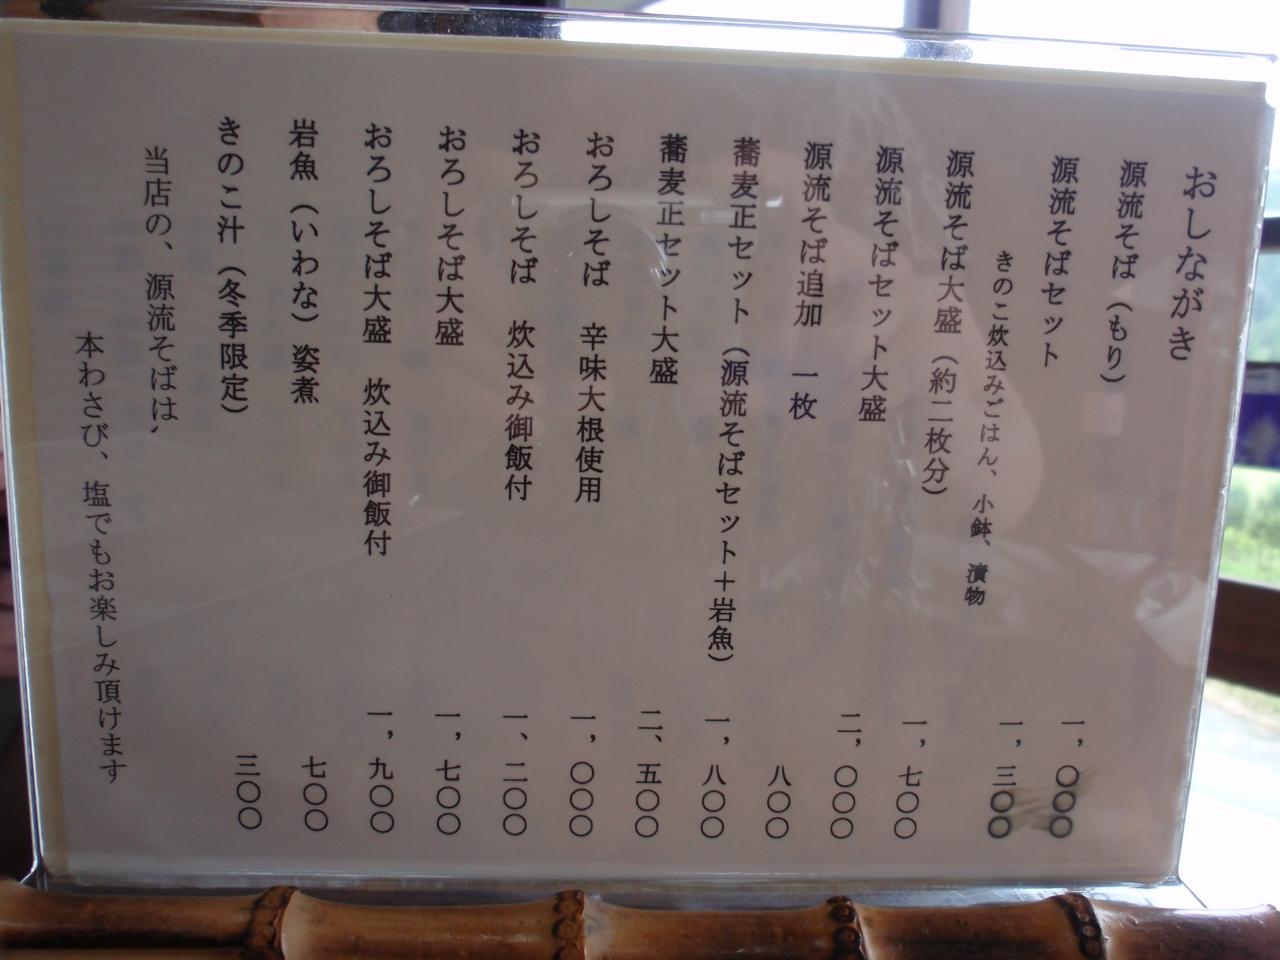 おしながき
源流そば（もり） 一，〇〇〇
源流そばセット 一，三〇〇
きのこ炊込みごはん、小鉢、漬物
源流そば大盛（約二枚分） 一，七〇〇
源流そばセット大盛 二，〇〇〇
源流そば追加 一枚 八〇〇
蕎麦正セット（源流そばセット＋岩魚） 一，八〇〇
蕎麦正セット大盛 二、五〇〇
おろしそば 辛味大根使用 一，〇〇〇
おろしそば 炊込み御飯付 一、二〇〇
おろしそば大盛 一，七〇〇
おろしそば大盛 炊込み御飯付 一，九〇〇
岩魚（いわな）姿煮 七〇〇
きのこ汁（冬季限定） 三〇〇
当店の、源流そばは，
本わさび、塩でもお楽しみ頂けます